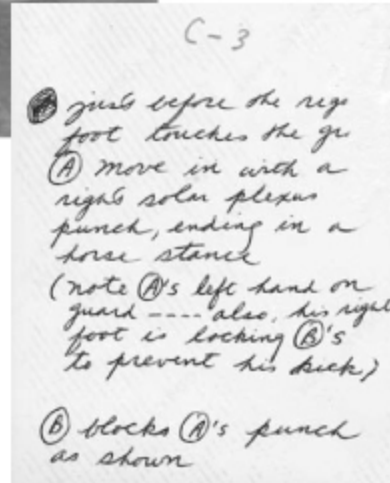 C-3
just before the righ
foot touches the gr
Ⓐ move in with a
right solar plexus
punch, ending in a
horse stance
(note Ⓐ's left hand on
guard ---- also, his right
foot is locking Ⓑ's
to prevent his kick,)
Ⓑ blocks Ⓐ's punch
as shown